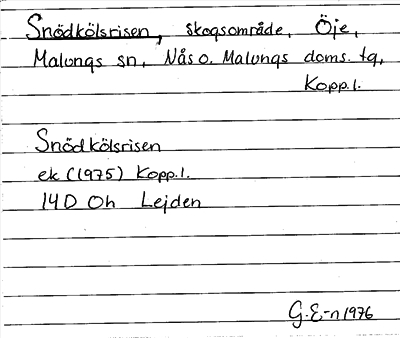 Snödkölsrisen, skogsområde, Öje,
Malungs sn, Nås o. Malungs doms. tg,
Kopp.l.
Snödkölsrisen
ek (1975) Kopp.l.
14D Oh Lejden
G.E-n 1976